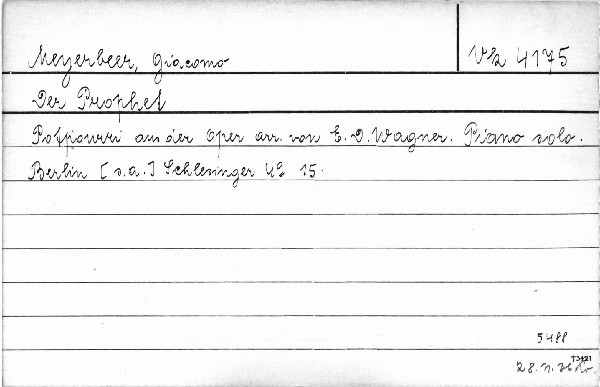 Meyerbeer, Giacomo
Vh 4175
Der Prophet
Potpourri aus der Oper arr. von E. D. Wagner. Piano solo.
Berlin [s.a.] Schlesinger 4° 15.
5488
T3421
28.